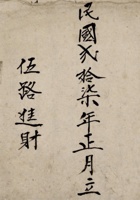 民國貳拾柒年正月立
伍路進財